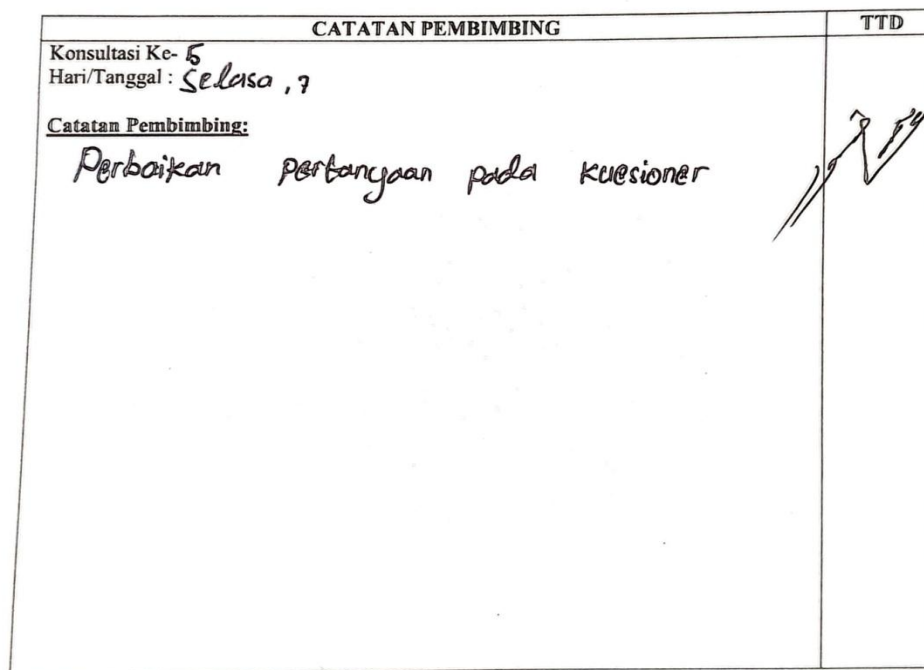 CATATAN PEMBIMBING
TTD
Konsultasi Ke- 5
Hari/Tanggal : Selasa , 7
Catatan Pembimbing:
Perbaikan pertanyaan pada kuesioner